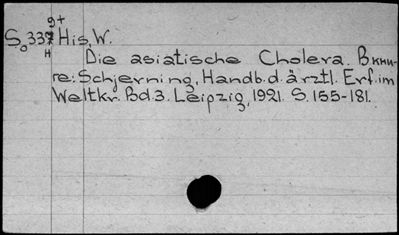 9+
So 337 His, W.
H
Die asiatische Cholera. В кни-
ге: Schjerning, Handb. d. ärztl. Erf. im
Weltkr. Bd. 3. Leipzig, 1921. S. 155-181.